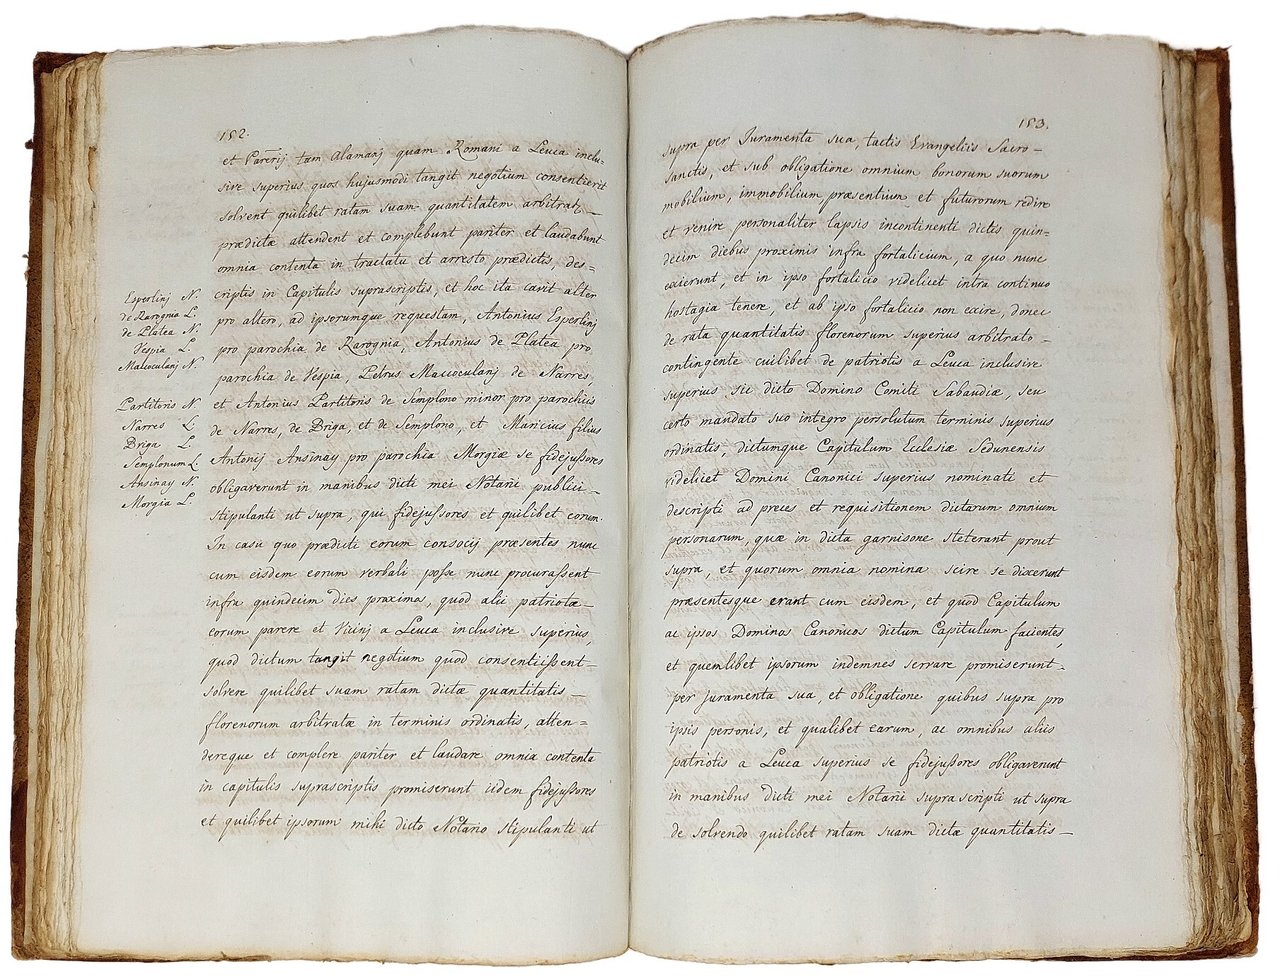 182.
et Parerij tam Alamanj quam Romani a Leuca inclu=
sive superius quos hujusmodi tangit negotium consentierit
solvent quilibet ratam suam quantitatem arbitrat
prædictæ attendent et complebunt pariter et laudabunt
omnia contenta in tractatu et arresto prædictis, des=
criptis in Capitulis suprascriptis, et hoc ita cavit alter
pro altero, ad ipsorumque requestam, Antonius Esperlinj
pro parochia de Rarognia, Antonius de Platea pro
parochia de Vespia, Petrus Maxoculanj de Narres,
et Antonius Partitoris de Semplono minor pro parochiis
de Narres, de Briga, et de Semplono, et Maricius filius
Antonij Ansinay pro parochia Morgiæ se fidejussores
obligaverunt in manibus dicti mei Notarii publici
stipulanti ut supra, qui fidejussores et quilibet eorum.
In casu quo prædicti eorum consocij præsentes nunc
cum eisdem eorum verbali posse nunc procurassent
infra quindecim dies proximos, quod alii patriotæ
eorum parere et Vicinj a Leuca inclusive superius,
quod dictum tangit negotium quod consentiissent
solvere quilibet suam ratam dictæ quantitatis
florenorum arbitratæ in terminis ordinatis, atten=
dereque et complere pariter et laudare omnia contenta
in capitulis suprascriptis promiserunt iidem fidejussores
et quilibet ipsorum mihi dicto Notario stipulanti ut
Esperlinj N.
de Rarognia L.
de Platea N.
Vespia L.
Maxoculanj N.
Partitoris N.
Narres L.
Briga L.
Semplonum L.
Ansinay N.
Morgia L.
183.
supra per Juramenta sua, tactis Evangeliis Sacro-
sanctis, et sub obligatione omnium bonorum suorum
mobilium, immobilium præsentium et futurorum redire
et venire personaliter lapsis incontinenti dictis quin=
decim diebus proximis infra fortalicium, a quo nunc
exierunt, et in ipso fortalicio videlicet intra continuo
hostagia tenere, et ab ipso fortalicio non exire, donec
de rata quantitatis florenorum superius arbitrato
contingente cuilibet de patriotis a Leuca inclusive
superius sic dicto Domino Comiti Sabaudiæ, seu
certo mandato suo integro persolutum terminis superius
ordinatis, dictumque Capitulum Ecclesiæ Sedunensis
videlicet Domini Canonici superius nominati et
descripti ad preces et requisitionem dictarum omnium
personarum, quæ in dicta garnisone steterant prout
supra, et quorum omnia nomina scire se dixerunt
præsentesque erant cum eisdem, et quod Capitulum
ac ipsos Dominos Canonicos dictum Capitulum facientes,
et quemlibet ipsorum indemnes servare promiserunt
per Juramenta sua, et obligatione quibus supra pro
ipsis personis, et qualibet earum, ac omnibus aliis
patriotis a Leuca superius se fidejussores obligaverunt
in manibus dicti mei Notarii suprascripti ut supra
de solvendo quilibet ratam suam dictæ quantitatis